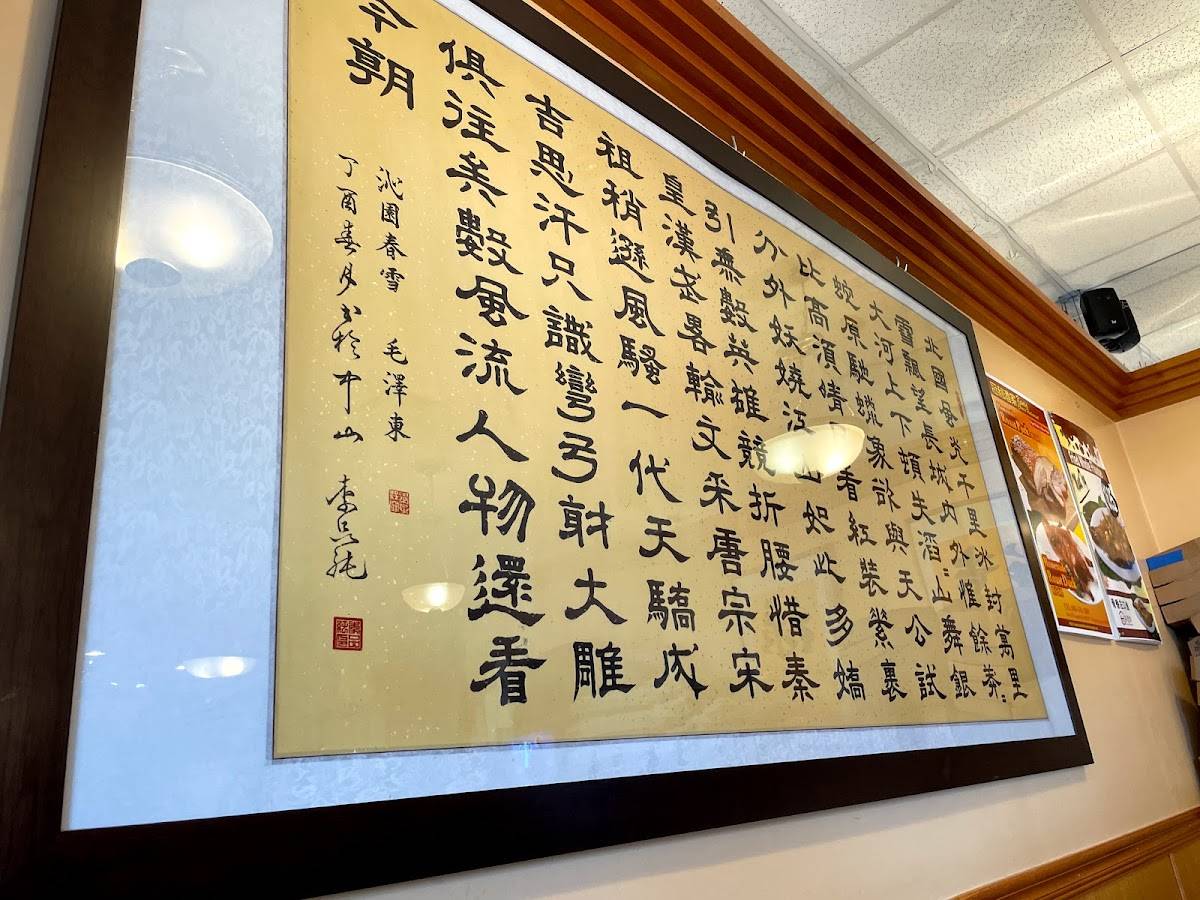 北國風光千里冰封萬里
雪飄望長城內外惟餘莽〻
大河上下頓失滔〻山舞銀
蛇原馳蠟象欲與天公試
比高須晴日看紅裝素裹
分外妖嬈江山如此多嬌
引無數英雄競折腰惜秦
皇漢武畧輸文采唐宗宋
祖稍遜風騷一代天驕成
吉思汗只識彎弓射大雕
俱往矣數風流人物還看
今朝
沁園春雪 毛澤東
丁酉春月書於中山 李